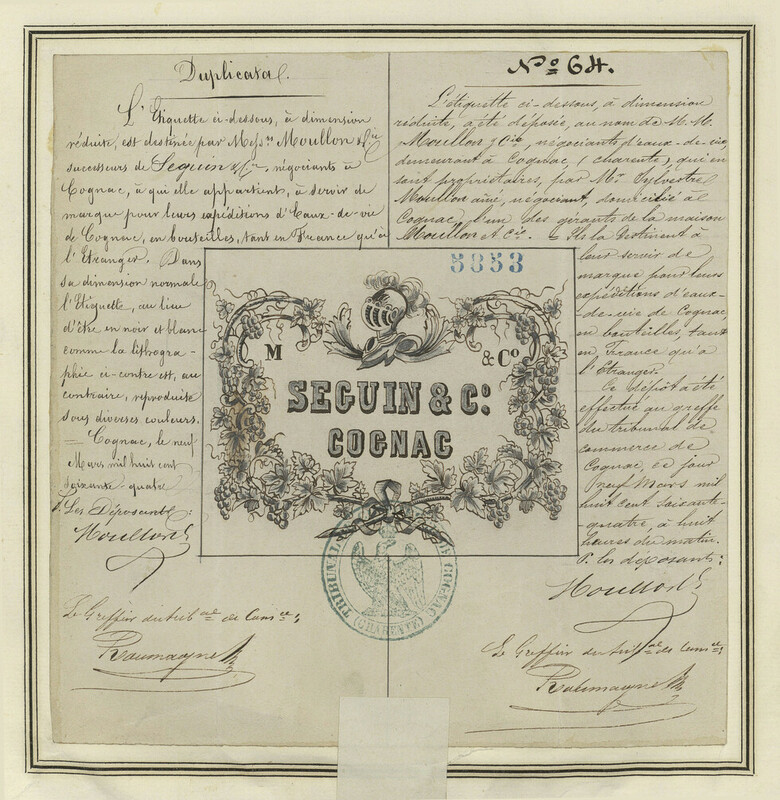 Duplicata.
L'Etiquette ci-dessous, à dimension
réduite, est destinée par Mess.rs Moullon & Cie
successeurs de Seguin & Cie, négociants à
Cognac, à qui elle appartient, à servir de
marque pour leurs expéditions d'Eaux-de-vie
de Cognac, en bouteilles, tant en France qu'à
l'Etranger. Dans
sa dimension normale
l'Etiquette, au lieu
d'être en noir et blanc
comme la lithogra-
phie ci-contre est, au
contraire, reproduite
sous diverses couleurs.
= Cognac, le neuf
Mars mil huit cent
soixante-quatre
P. Les Déposants:
Moullon
Le Greffier du trib.al de Com.ce;
Roumagne
No 64.
L'étiquette ci-dessous, à dimension
réduite, a été déposée, au nom de M.M.
Moullon & Cie, négociants d'eaux-de-vie,
demeurant à Cognac, (charente), qui en
sont propriétaires, par Mr. Sylvestre
Moullon aîné, négociant, domicilié à
Cognac, l'un des gérants de la maison
Moullon et Cie. = Ils la destinent à
leur servir de
marque pour leurs
expéditions d'eaux-
de-vie de Cognac,
en bouteilles, tant
en France qu'à
l'Etranger.
Ce dépôt a été
effectué au greffe
du tribunal de
commerce de
Cognac, ce jour
neuf Mars mil
huit cent soixante-
quatre, à huit
heures du matin.
P. les déposants:
Moullon
Le Greffier du trib.al de Com.ce;
Roumagne
5853
M & Co
SEGUIN & Co:
COGNAC
TRIBUNAL DE COGNAC
(CHARENTE)